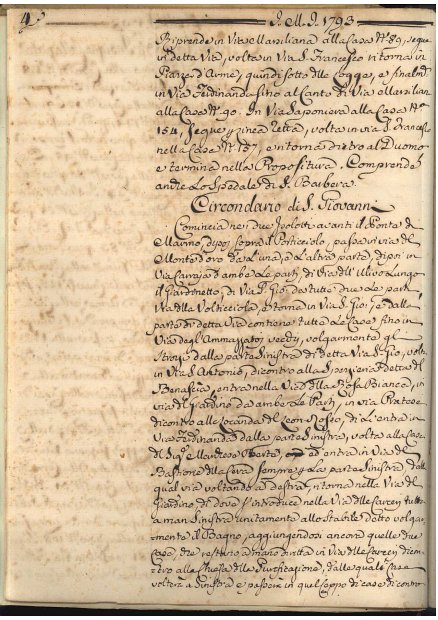 4. J. M. J. 1793
Riprende in Via Marsiliana alla Casa N.º 89, segue
in detta Via, volta in Via S. Francesco ritorna in
Piazza d'Arme, quindi sotto dlle Logge, e finalm.
in Via Ferdinanda sino al Canto di Via Marsilian
alla Casa N.º 90. In Via Saponiera alla Casa N.º
154, segue p linea retta, volta in via S. Francesco
nella Casa N.º 137, e ritorna dietro al Duomo
e termina nella Propositura. Comprende
anche lo Spedale di S. Barbera.
Circondario di S. Giovanni
Comincia nei due Isolotti avanti il Ponte di
Marmo, dipoi sopra il Porticciolo, passa in via del
Monte d'oro da L'una, e L'altra parte, dipoi in
Via Carraja d'ambe Le parti, di Via dell' Ulivo Lungo
il Giardinetto, di Via S. Gio: da tutte due Le parti
Via dlla Volticciola, e torna in Via S. Gio:, e dalla
parte di detta Via contiene tutte Le Case fino in
Via degli Ammazzatoj vecchj, volgarmente gl
dalla parte Sinistra di detta Via S. Gio:, volta
in Via S. Antonio, dicontro alla Spezieria detta del
Benassia, entra nella Via dlla Rosa Bianca, in
via del Giardino da ambe Le Parti, in via Pratese
dicontro alla Locanda del Leon Rosso, di L'entra in
Via Ferdinanda dalla parte Sinistra, volta alla Casa
di Sig.e, ed entra in Via del
Bastione dlla Cera sempre p La parte Sinistra, dalla
qual via voltando a destra, ritorna nella Via del
Giardino, di dove s'introduce nella Via dlle Carceri
a man Sinistra unitamente allo Stabile detto volgar-
mente il Bagno, aggiungendosi ancora quelle due
Case, che restano a mano diritta in Via dlle Carceri dicon-
tro alla Chiesa dlla Purificazione, dalle quali Case
volterà a Sinistra e passerà in quel Ceppo di case di contro